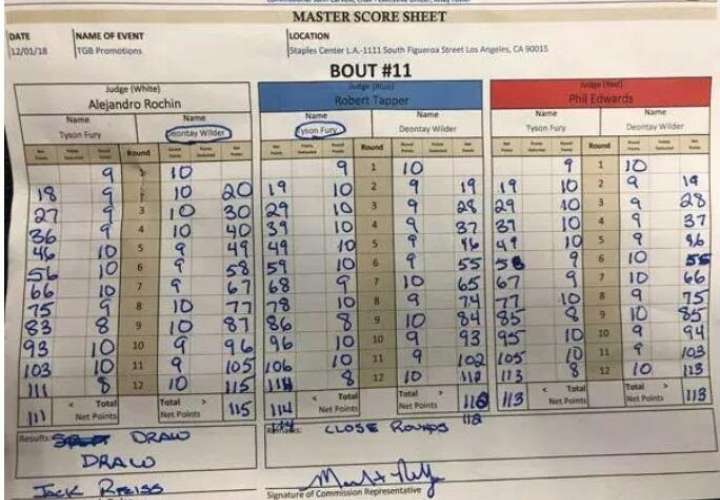 MASTER SCORE SHEET
DATE NAME OF EVENT LOCATION
12/01/18 TGB Promotions Staples Center L.A.-1111 South Figueroa Street Los Angeles, CA 90015
BOUT #11
Judge (White) Judge (Blue) Judge (Red)
Alejandro Rochin Robert Tapper Phil Edwards
Name Name Name Name Name Name
Tyson Fury Deontay Wilder Tyson Fury Deontay Wilder Tyson Fury Deontay Wilder
Round Round Round
9 10 9 1 10 9 1 10
18 9 10 20 19 10 2 9 19 19 10 2 9 19
27 9 3 10 30 29 10 3 9 28 29 10 3 9 28
36 9 4 10 40 39 10 4 9 37 39 10 4 9 37
46 10 5 9 49 49 10 5 9 46 49 10 5 9 46
56 10 6 9 58 59 10 6 9 55 58 9 6 10 56
66 10 7 9 67 68 9 7 10 65 67 9 7 10 66
75 9 8 10 77 78 10 8 9 74 77 10 8 9 75
83 8 9 10 87 86 8 9 10 84 85 8 9 10 85
93 10 10 9 96 96 10 10 9 93 95 10 10 9 94
103 10 11 9 105 106 10 11 9 102 105 10 11 9 103
111 8 12 10 115 114 8 12 10 112 113 8 12 10 113
111 < Total Net Points Total > Net Points 115 114 < Total Net Points Total > Net Points 113 < Total Net Points Total > Net Points 113
114 112
Results: DRAW CLOSE ROUNDS
DRAW
JACK REISS
Signature of Commission Representative